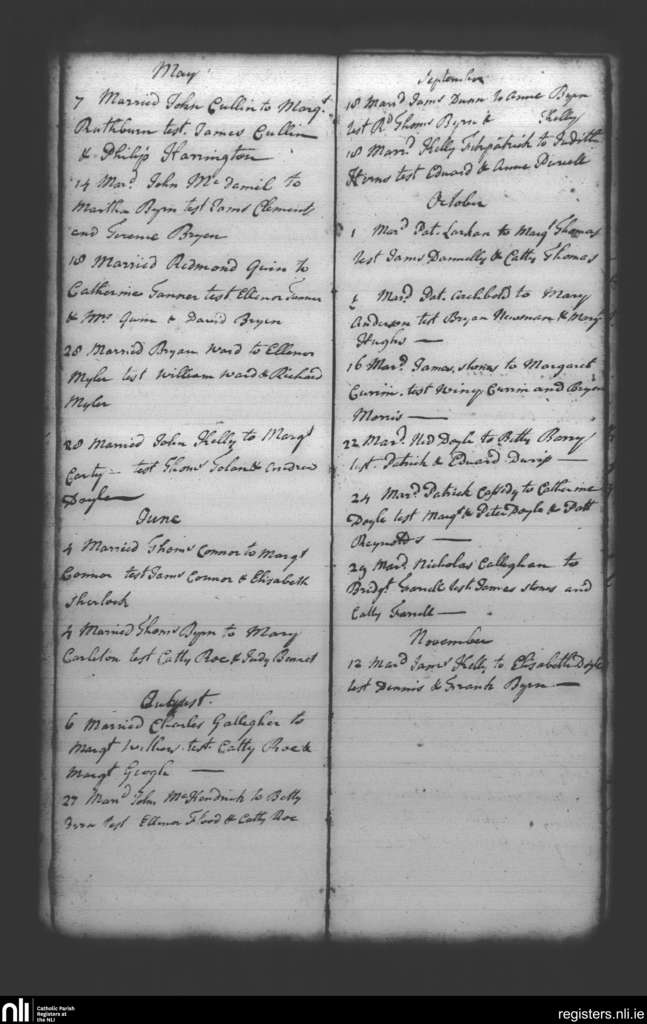 May
7 Married John Cullin to Margt
Rathburn test. James Cullin
& Philip Harrington
14 Mard John Mc Daniel to
Martha Byrn test Jams Clements
and Bryen
18 Married Redmond Quin to
Catherine Tanner test Ellenor Tanner
& Mrs Quin & David Bryen
28 Married Bryan Ward to Ellenor
Myler test William Ward & Richard
Myler
28 Married John Kelly to Margt
Carty – test Thoms Toland & Andrew
Doyle
June
4 Married Thoms Connor to Margt
Connor test Jams Connor & Elisabeth
Sherlock
4 Married Thoms Byrn to Mary
Carleton test Catty Roe & Judy Bennet
August.
6 Married Charles Gallegher to
Margt test. Catty Roe &
Margt —
27 Marrd John McKendrick to Betty
test Ellenor Flood & Catty Roe
September
18 Marrd Jams Dunn to Anne Byrn
test Rd Thoms Byrn & Kelly
18 Marrd Kelly Fitzpatrick to Judith
test Edward & Anne
October
1 Mard Pat. Larkan to Margt Thomas
test Jams Dannelly & Catty Thomas
Mard Pat. Archbold to Mary
Anderson test Bryan Newsman & Margt
Hughs —
16 Mard James Stones to Margaret
Currin. test Winey Currin and Bryan
Morris —
22 Mard Ned Doyle to Betty Barry
test. Patrick & Edward —
24 Mard Patrick Cassidy to Catherine
Doyle test Margt & Peter Doyle & Patt
Reynolds —
29 Mard Nicholas Calleghan to
Bridgt Farrell test James Stones and
Catty Farrell —
November
12 Mard Jams Kelly to Elisabeth Doyle
test Dennis & Frank Byrn —
nli
Catholic Parish
Registers at
the NLI
registers.nli.ie